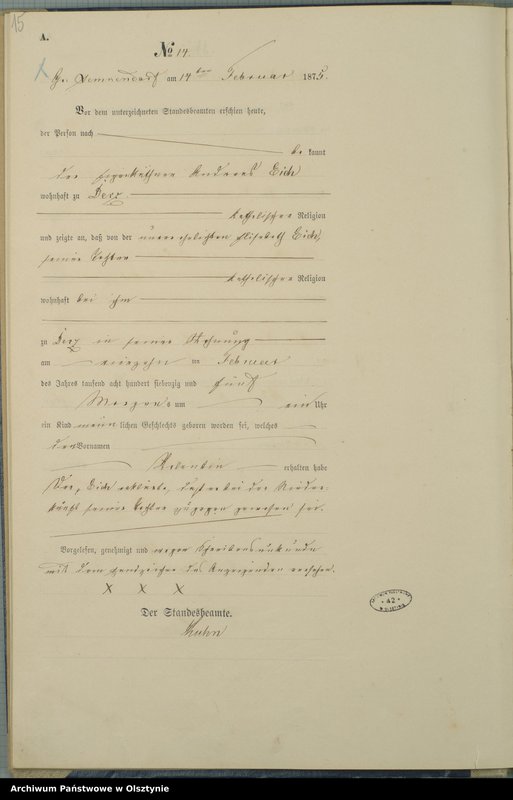 15
A.
№ 14.
Gr. am 14 ten Februar 1875.
Vor dem unterzeichneten Standesbeamten erschien heute,
der Person nach
be kannt
der Andreas Eich
wohnhaft zu Derz
katholischer Religion
und zeigte an, daß von der unverehelichten Elisabeth Eich,
seiner Tochter
katholischer Religion
wohnhaft bei ihm
zu Derz in seiner Wohnung
am vierzehn ten Februar
des Jahres tausend acht hundert siebenzig und fünf
Morgens um ein Uhr
ein Kind männ lichen Geschlechts geboren worden sei, welches
den Vornamen
Valentin erhalten habe
Der, Eich erklärte, daß er bei der Nieder-
kunft seiner Tochter zugegen gewesen sei.
Vorgelesen, genehmigt und wegen Schreibensunkunde
mit dem Handzeichen des Anzeigenden versehen.
X X X
Der Standesbeamte.
Kuhn
42
Archiwum Państwowe w Olsztynie